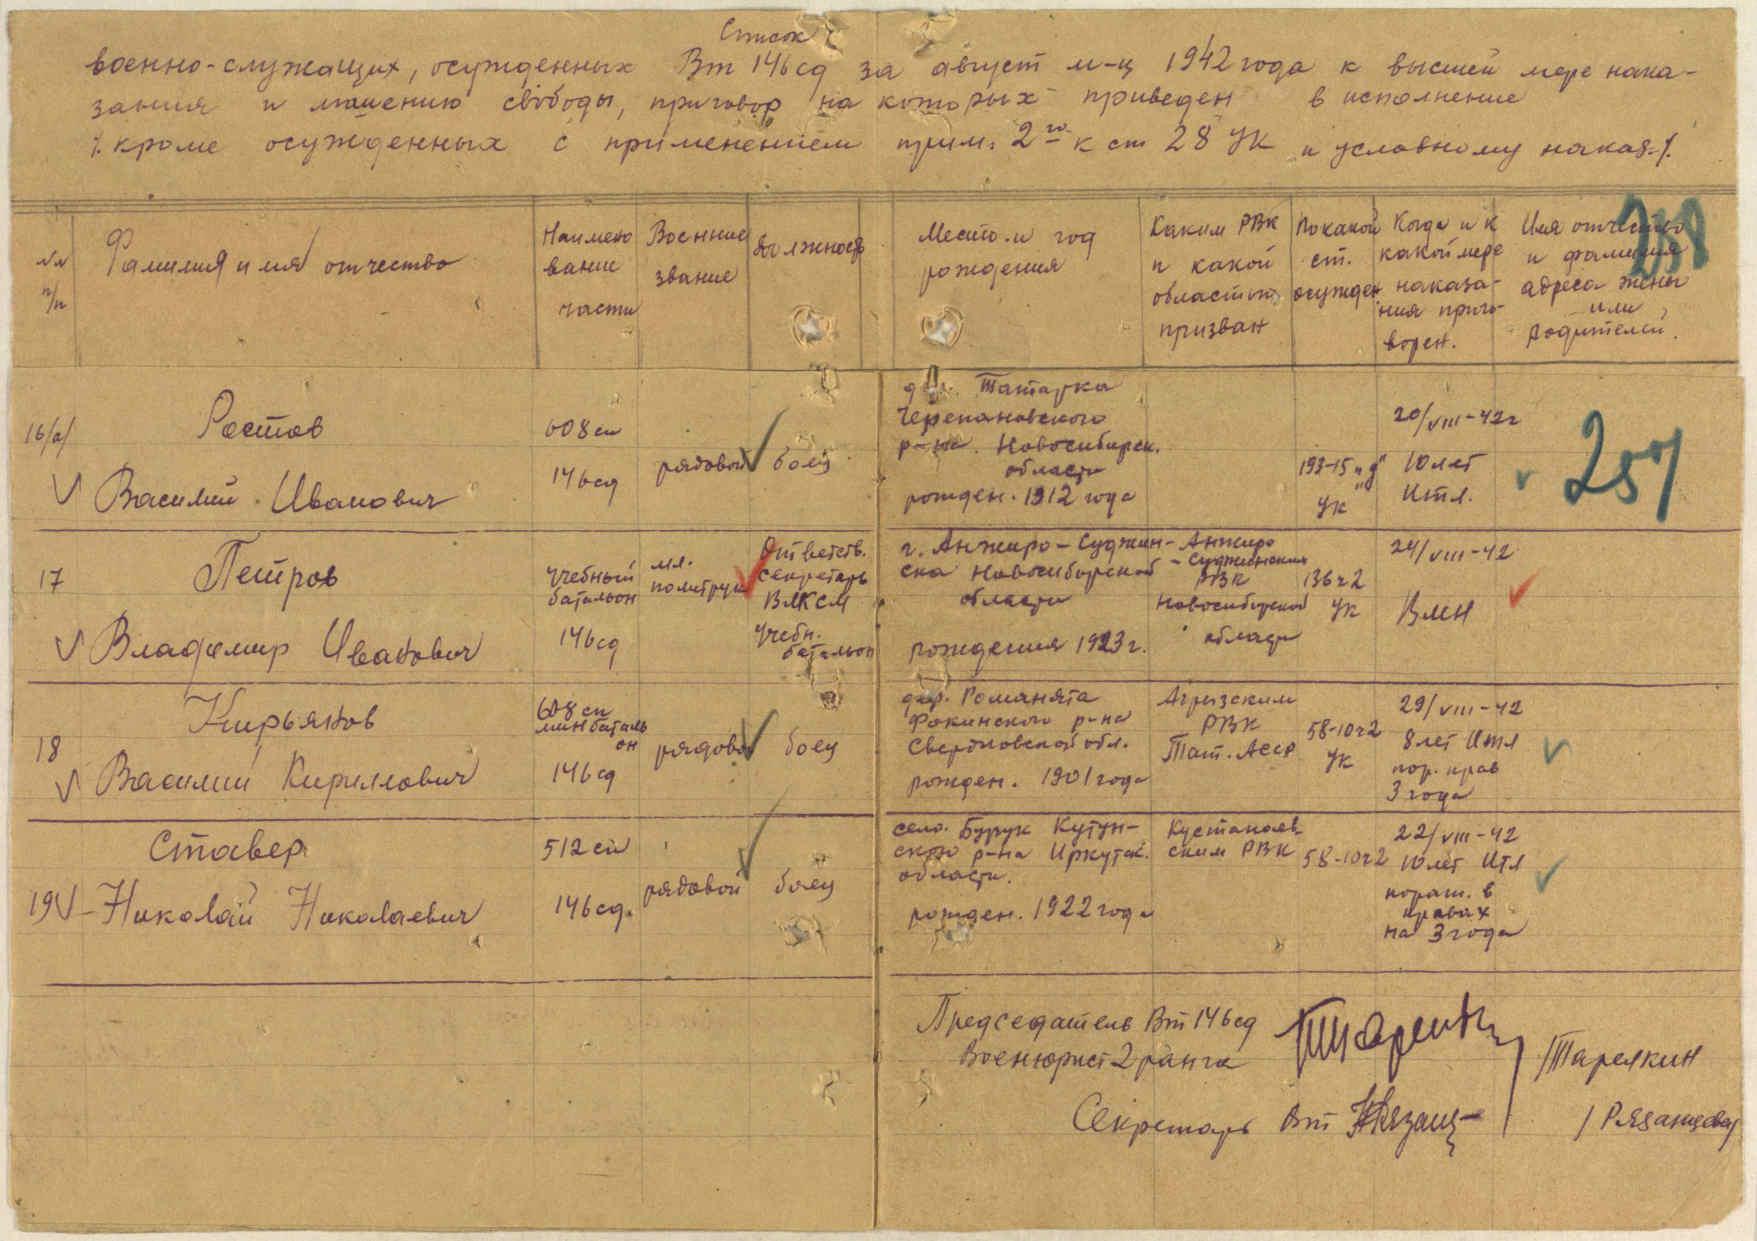 Список
военно-служащих, осужденных Вт 146 сд за август м-ц 1942 года к высшей мере нака-
зания и лишению свободы, приговор на которых приведен в исполнение
/. кроме осужденных с применением прим. 2го к ст 28 УК и условному наказ./.
№№ п/п
Фамилия имя отчество
Наимено
вание
части
Военные
звание
Должность
Место и год
рождения
Каким РВК
и какой
областью
призван
По какой
ст.
осужден
Когда и к
какой мере
наказа-
ния приго-
ворен.
Имя отчество
и фамилия
адреса жены
или
родителей.
258
16/а/
Ростов
Василий Иванович
608 сп
146 сд
рядовой
боец
дер. Татарка
Черепановского
р-на. Новосибирск.
области
рожден. 1912 года
193-15 "д"
УК
20/VIII-42 г
10 лет
Итл.
257
17
Петров
Владимир Иванович
учебный
батальон
146 сд
мл.
политрук
Ответств.
секретарь
ВЛКСМ
учебн.
батальон
г. Анжиро-Суджин-
ска Новосибирской
области
рождения 1923 г.
Анжиро
-Судженским
РВК
Новосибирской
области
136 ч 2
УК
24/VIII-42
ВМН
18
Кирьянов
Василий Кириллович
608 сп
минбаталь
он
146 сд
рядовой
боец
дер. Романята
Фокинского р-на
Свердловской обл.
рожден. 1901 года
Агрызским
РВК
Тат. АССР
58-10 ч 2
УК
29/VIII-42
8 лет Итл
пор. прав
3 года
19
Ставер
Николай Николаевич
512 сп
146 сд.
рядовой
боец
село. Бурук Кутун-
ского р-на Иркутск.
области.
рожден. 1922 года
Кустанаев
ским РВК
58-10 ч 2
22/VIII-42
10 лет Итл
пораж. в
правах
на 3 года
Председатель Вт 146 сд
Военюрист 2 ранга
/Тарелкин
Секретарь Вт
/Рязанцев/